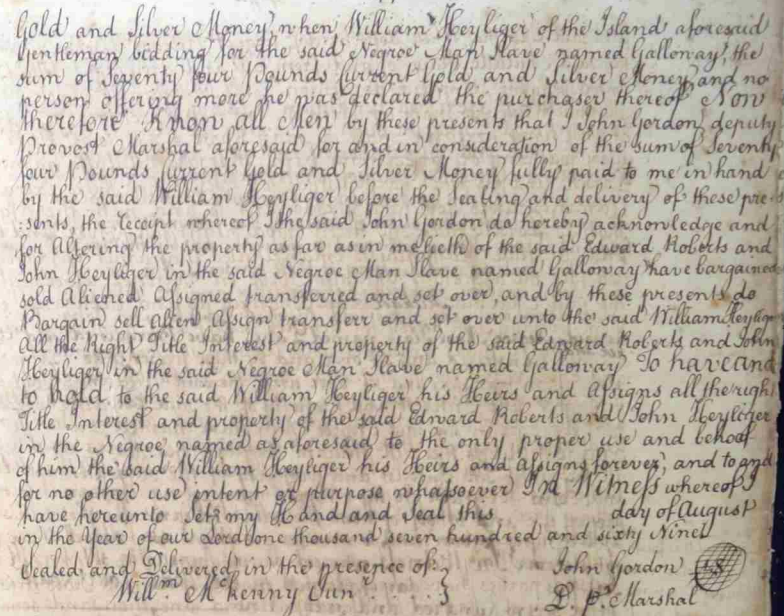 Gold and Silver Money, when William Heyliger of the Island aforesaid
Gentleman bidding for the said Negroe Man Slave named Galloway, the
sum of Seventy four Pounds Current Gold and Silver Money, and no
person offering more he was declared the purchaser thereof Now
therefore Know all Men by these presents that I John Gordon, deputy
Provost Marshal aforesaid for and in consideration of the sum of Seventy
four Pounds Current Gold and Silver Money fully paid to me in hand
by the said William Heyliger before the Sealing and delivery of these pre
:sents, the receipt whereof I the said John Gordon do hereby acknowledge and
for Altering the property as far as in me lieth of the said Edward Roberts and
John Heyliger in the said Negroe Man Slave named Galloway have bargained
sold Aliened Assigned transferred and set over, and by these presents do
Bargain sell Alien Assign transferr and set over unto the said William Heyliger
All the Right Title Interest and property of the said Edward Roberts and John
Heyliger in the said Negroe Man Slave named Galloway To have and
to hold to the said William Heyliger his Heirs and Assigns all the right
Title Interest and property of the said Edward Roberts and John Heyliger
in the Negroe named as aforesaid to the only proper use and behoof
of him the said William Heyliger his Heirs and Assigns forever, and to and
for no other use intent or purpose whatsoever In Witness whereof I
have hereunto Set my Hand and Seal this day of August
in the Year of our Lord one thousand seven hundred and sixty Nine
Sealed and Delivered in the presence of John Gordon LS
Willm McKenny Junr D. P. Marshal